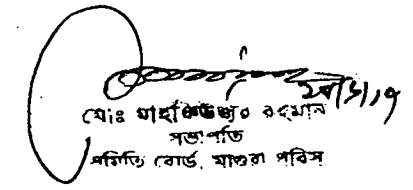 মোঃ রহমান
সভাপতি
সমিতি বোর্ড, মাগুরা পবিস